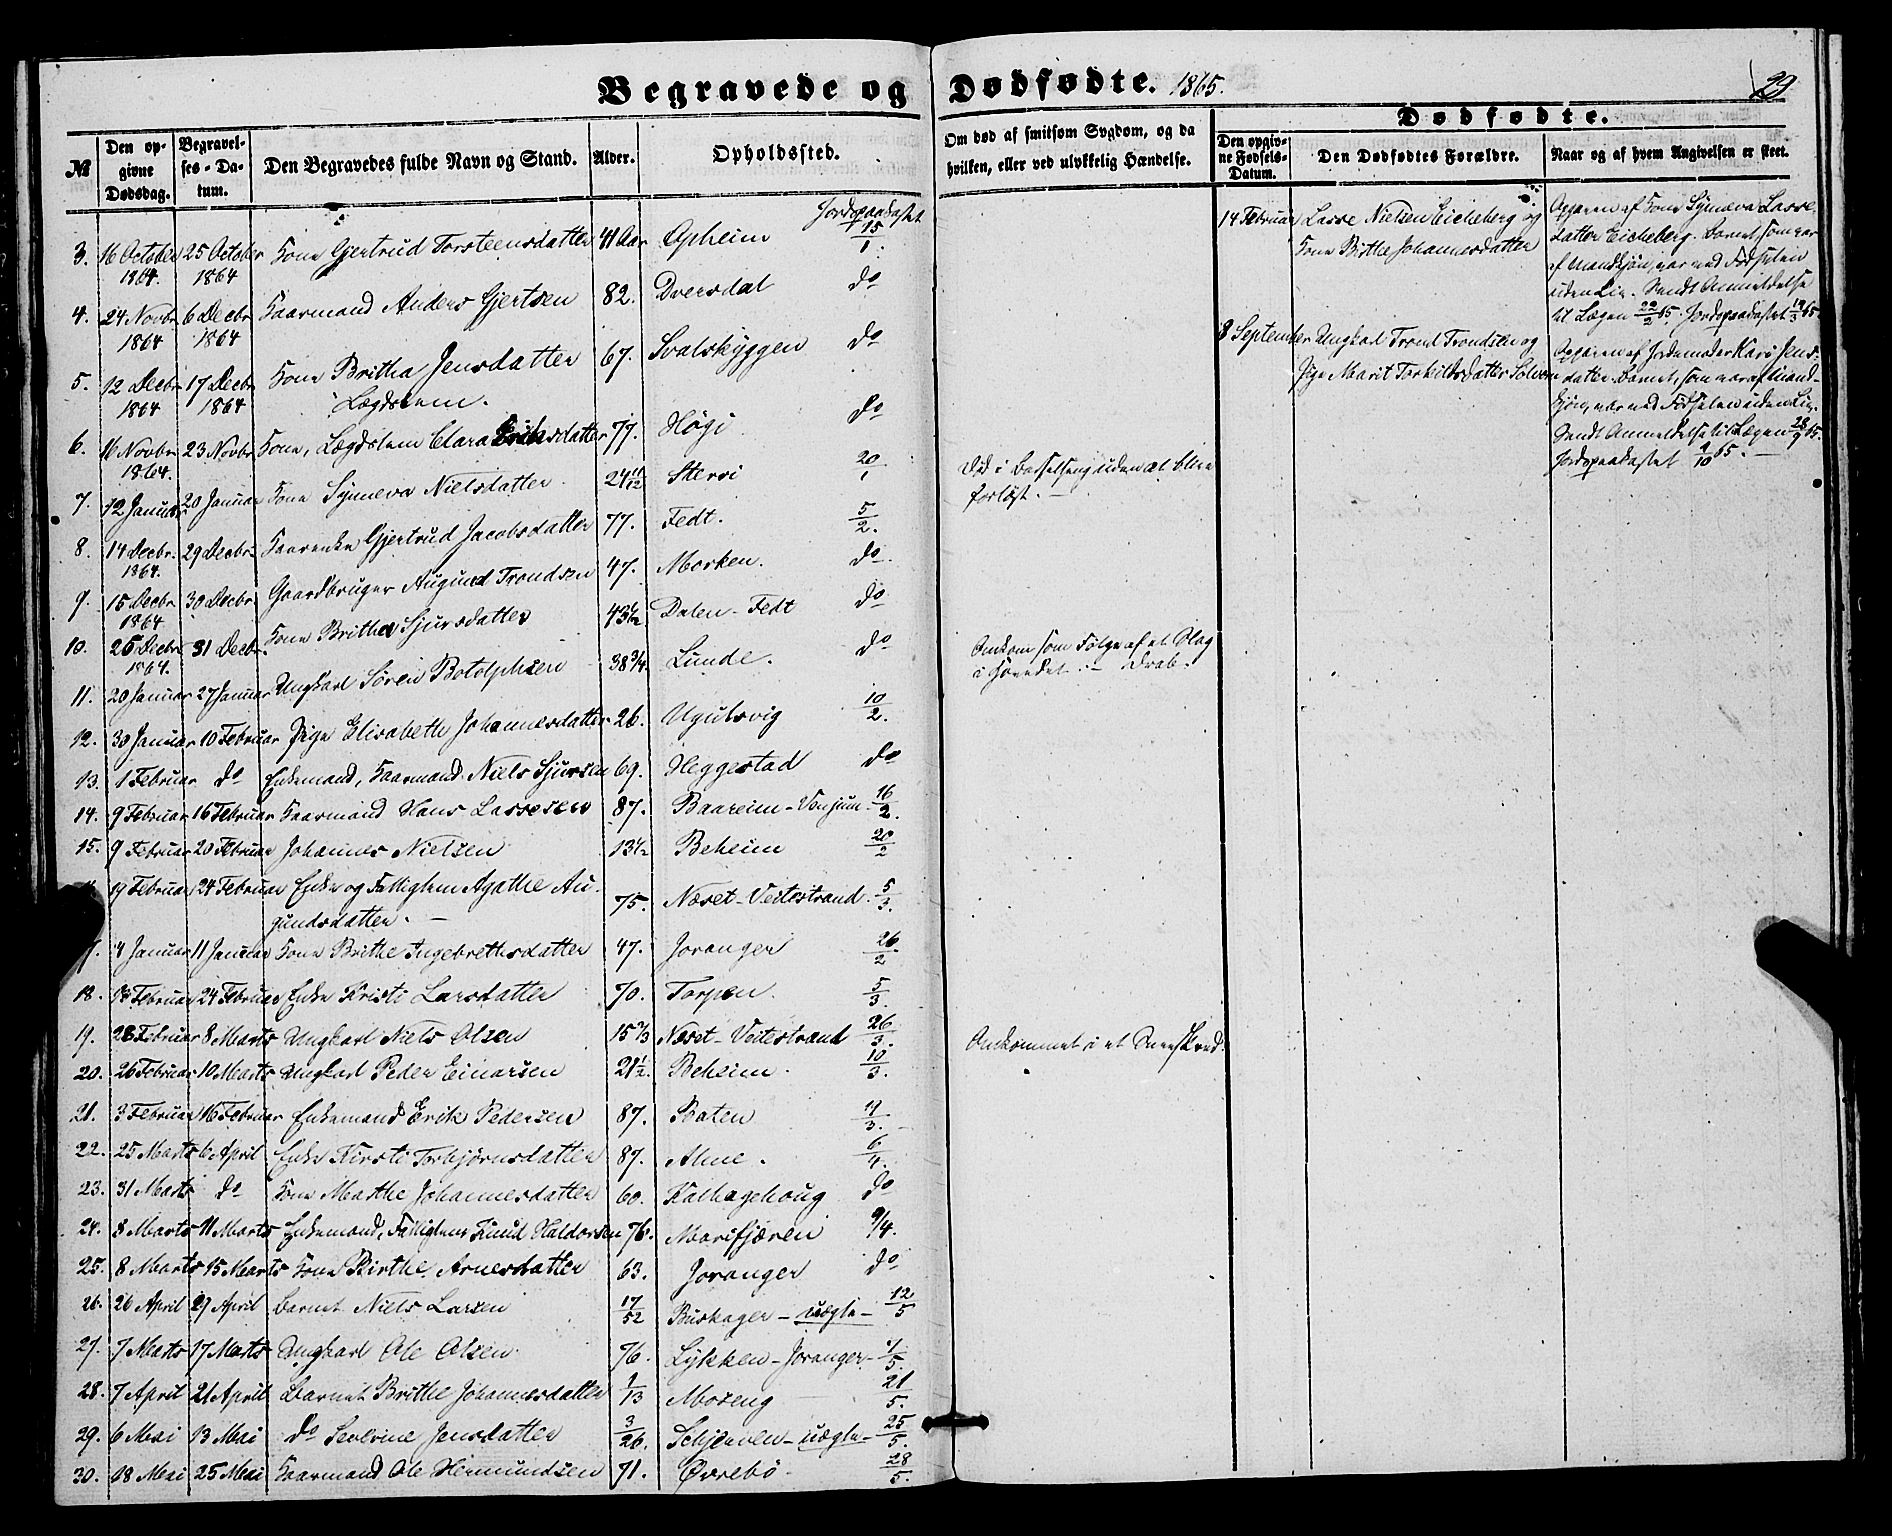 Begravede og Dødfødte. 1865.
29
№
Den opgivne Dødsdag.
Begravelses-Datum.
Den Begravedes fulde Navn og Stand.
Alder.
Opholdssted.
Om død af smitsom Sygdom, og da hvilken, eller ved ulykkelig Hændelse.
Dødfødte.
Den opgivne Fødsels-Datum.
Den Dødfødtes Forældre.
Naar og af hvem Angivelsen er skeet.
Jordpaakastet
3. 16 October 1864. 25 October 1864 Kone Gjertrud Torsteensdatter 41 Aar Opheim 15/1
4. 24 Novbr 1864 6 Decbr 1864 Kaarmand Anders Gjertsen 82. Dversdal do
5. 12 Decbr 1864 17 Decbr 1864 Kone Britha Jensdatter Lægdslem. 67. Svalskyggen do
6. 16 Novbr 1864. 23 Novbr Kone, Lægdslem Clara Eriksdatter 77. Høgi do
7. 12 Januar 20 Januar Kone Synneva Nielsdatter 24 11/12 Skersi 20/1 Død i Barselseng uden at blive forløst.
8. 14 Decbr. 1864. 29 Decbr. Kaarenke Gjertrud Jacobsdatter 77. Fedt. 5/2.
9. 15 Decbr 1864 30 Decbr Gaardbruger Augund Trondsen 47. Morken. do
10. 26 Decbr 1864. 31 Decbr. Kone Brithe Sjursdatter 43 1/2 Dalen-Fedt do
11. 20 Januar 27 Januar Ungkarl Søren Botolphsen 38 3/4. Lunde. do Omkom som Følge af et Slag i Hovedet. - Drab.
12. 30 Januar 10 Februar Pige Elisabeth Johannesdatter 26. Ugulsvig 10/2.
13. 1 Februar do Enkemand, Kaarmand Niels Sjursen 69. Heggestad do
14. 9 Februar 16 Februar Kaarmand Hans Lassesen 87. Baareim-Vanjum. 16/2.
15. 9 Februar 20 Februar Johannes Nielsen 13 1/2 Beheim 20/2
19 Februar 24 Februar Enke og Fattiglem Agathe Augundsdatter. 75. Næset-Veitestrand. 5/3.
7. 4 Januar 11 Januar Kone Brithe Ingebrethsdatter 47. Joranger 26/2
18. 18 Februar 24 Februar Enke Kristi Larsdatter 70. Torpen. 5/3.
19. 28 Februar 8 Marts Ungkarl Niels Olsen 15 2/3 Næset-Veitestrand 26/3. Omkommet i et Sneeskred.
20. 26 Februar 10 Marts Ungkarl Peder Einarsen 21 1/2. Beheim. 10/3.
21. 3 Februar 16 Februar Enkemand Erik Pedersen 87. Baten 19/3.
22. 25 Marts 6 April Enke Kirsti Torbjørnsdatter 87. Alme. 6/4.
23. 31 Marts do Kone Marthe Johannesdatter 60. Kalhagehoug do
24. 8 Marts 11 Marts Enkemand, Fattiglem Knud Haldorsen 76. Marifjæren 9/4.
25. 8 Marts 15 Marts Kone Birthe Arnesdatter 63. Joranger do
26. 26 April 29 April Barnet Niels Larsen 17/52 Buskager-uægte- 12/5
27. 7 Marts 17 Marts Ungkarl Ole Olsen 76. Lykken-Joranger- 7/5.
28. 7 April 21 April Barnet Brithe Johannesdatter 1/13 Moseng 21/5.
29. 6 Mai 13 Mai do Severine Jensdatter 3/26. Schjerven-uægte- 25/5.
30. 18 Mai 25 Mai Kaarmand Ole Hermundsen 71. Øvrebø. 28/5.
14 Februar Lasse Nielsen Eicheberg og
Kone Brithe Johannesdatter
Opgiven af Kone Synneva Lasse-
datter Eicheberg. Barnet som var
af Mandkjøn, var ved Fødselen
uden Liv. Sendt Anmeldelse
til Lægen 22/2 65. Jordpaakastet 19/3 65.
8 September Ungkarl Trond Trondsen og
Pige Marit Torkildsdatter
Opgiven af Jordemoder Kari Jens-
datter. Barnet, som var af Mand-
kjøn, var ved Fødselen uden Liv.
Sendt Anmeldelse til Lægen 28/9 65.
Jordpaakastet 9/10 65.